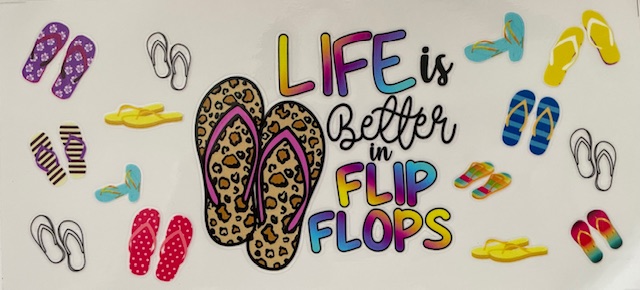 LIFE is
Better
in
FLIP
FLOPS